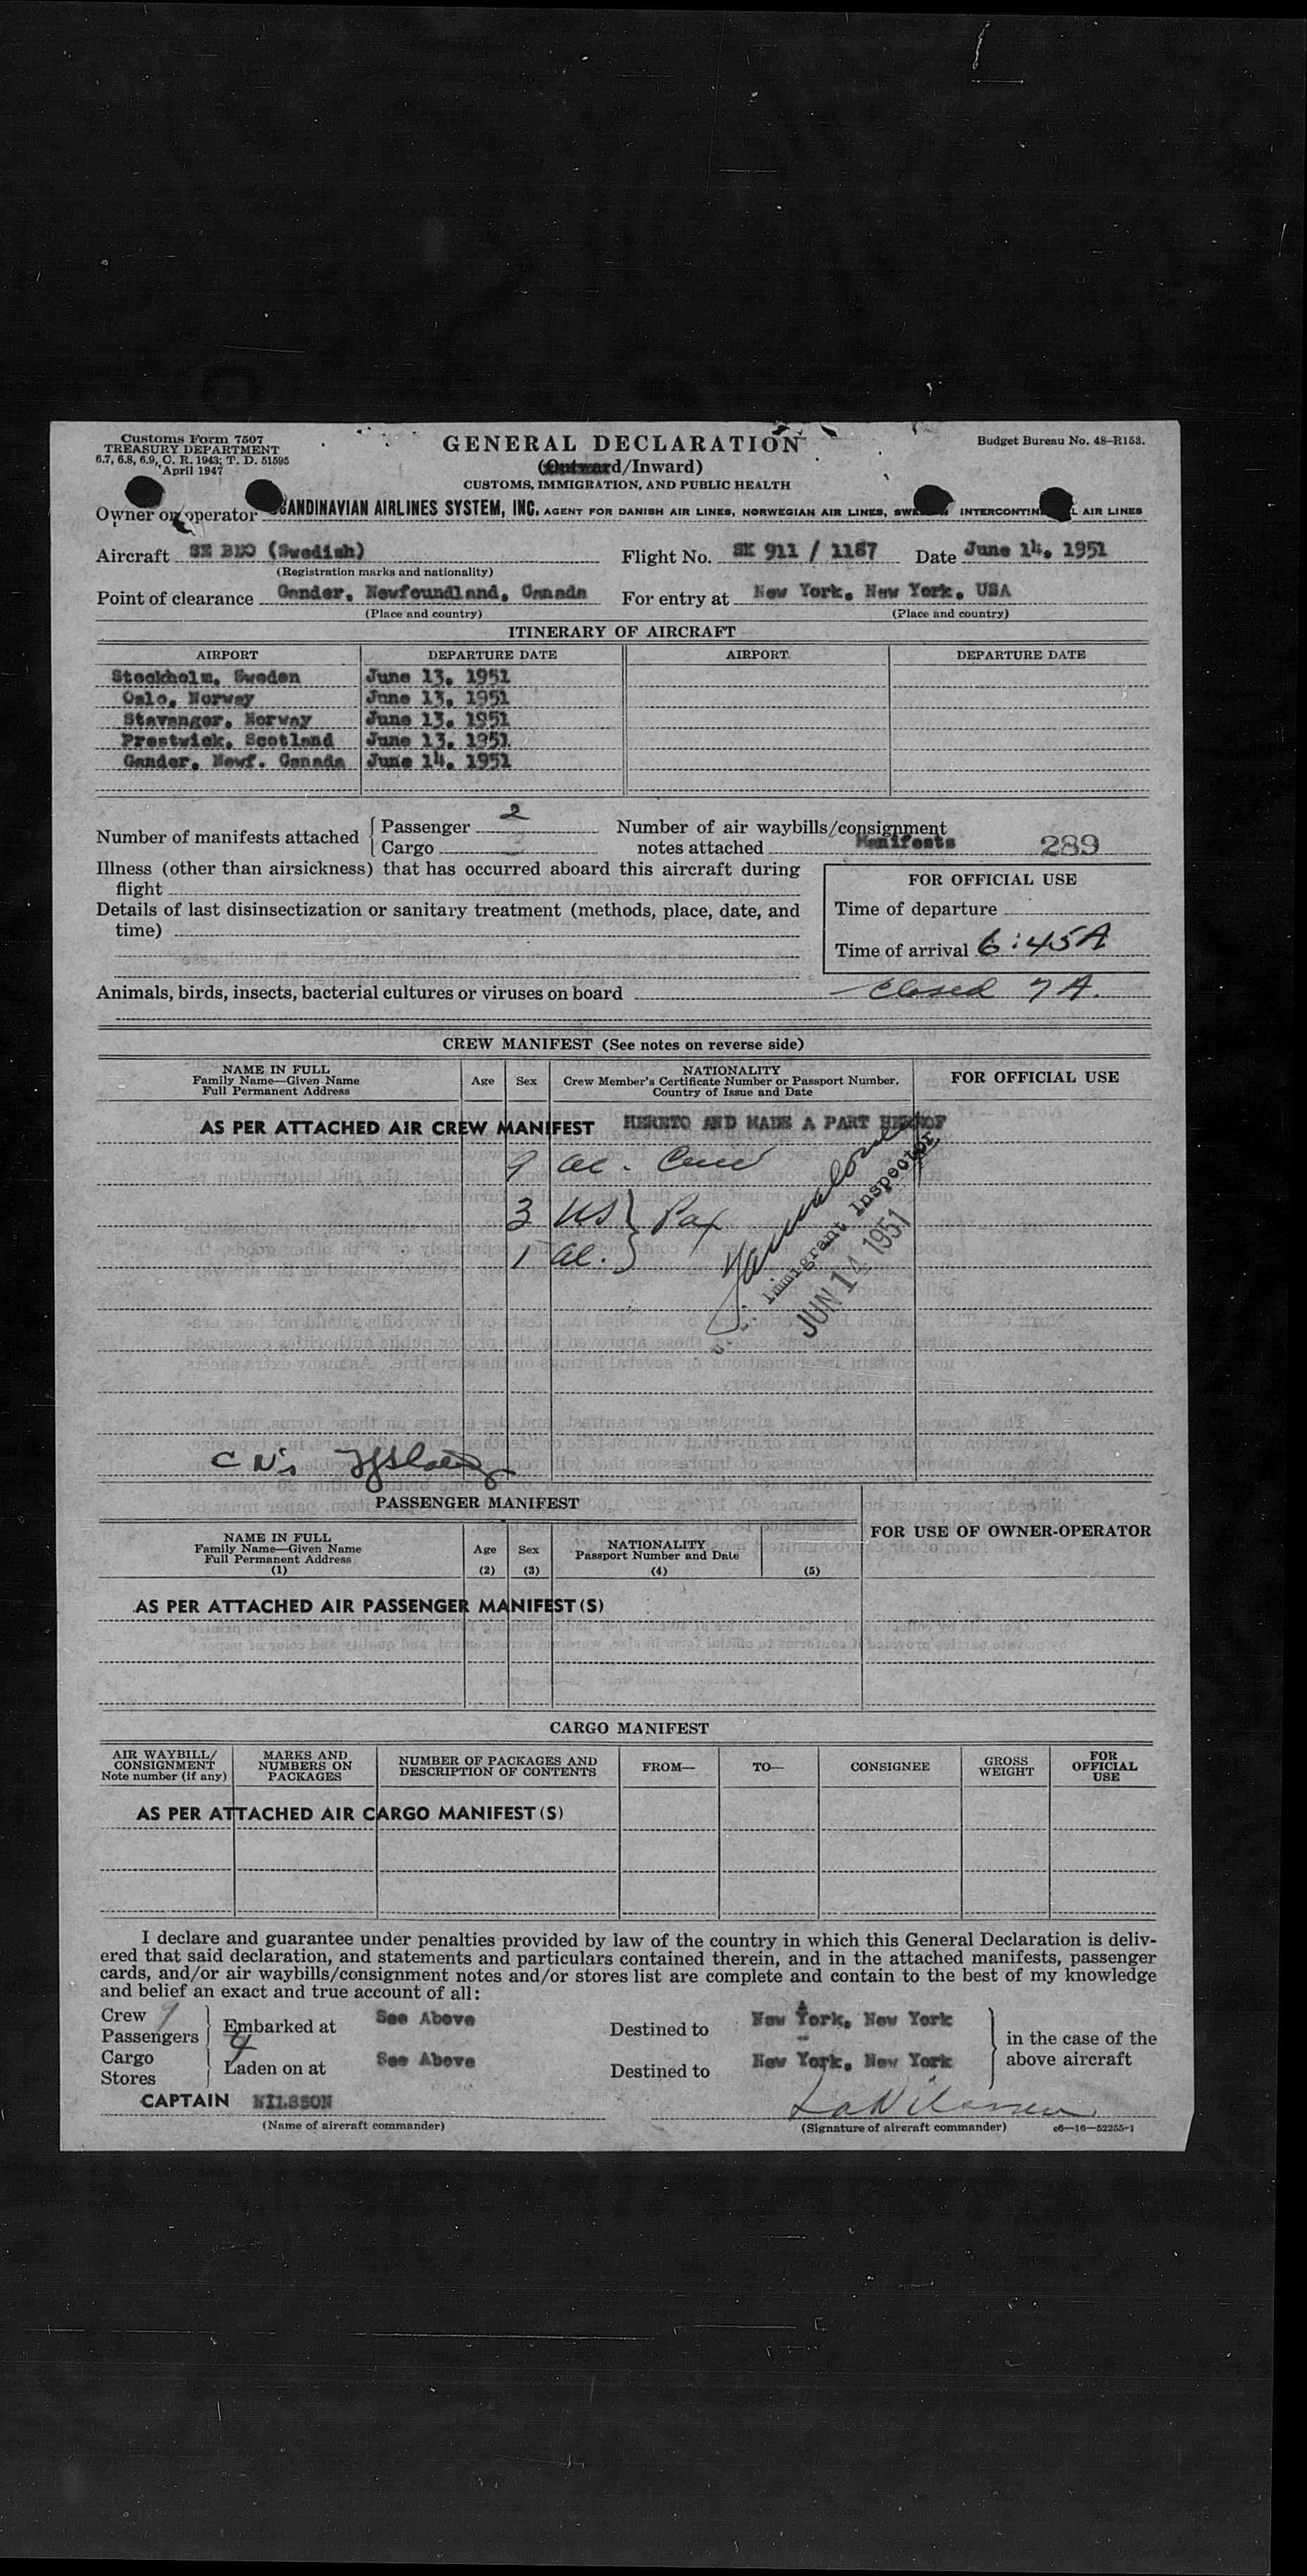 Customs Form 7507
TREASURY DEPARTMENT
6.7, 6.8, 6.9, C. R. 1943; T. D. 51595
April 1947
GENERAL DECLARATION
(Outward/Inward)
CUSTOMS, IMMIGRATION, AND PUBLIC HEALTH
Budget Bureau No. 48-R153.
Owner or operator SCANDINAVIAN AIRLINES SYSTEM, INC. AGENT FOR DANISH AIR LINES, NORWEGIAN AIR LINES, INTERCONTINENTAL AIR LINES
Aircraft SE BDO (Swedish) Flight No. SK 911 / 1167 Date June 14, 1951
(Registration marks and nationality)
Point of clearance Gander, Newfoundland, Canada For entry at New York, New York, USA
(Place and country) (Place and country)
ITINERARY OF AIRCRAFT
AIRPORT DEPARTURE DATE AIRPORT DEPARTURE DATE
Stockholm, Sweden June 13, 1951
Oslo, Norway June 13, 1951
Stavanger, Norway June 13, 1951
Prestwick, Scotland June 13, 1951
Gander, Newf. Canada June 14, 1951
Number of manifests attached { Passenger 2
Cargo
Number of air waybills/consignment
notes attached Manifests 289
Illness (other than airsickness) that has occurred aboard this aircraft during
flight
Details of last disinsectization or sanitary treatment (methods, place, date, and
time)
FOR OFFICIAL USE
Time of departure
Time of arrival 6:45A
Animals, birds, insects, bacterial cultures or viruses on board closed 7 A.
CREW MANIFEST (See notes on reverse side)
NAME IN FULL
Family Name—Given Name
Full Permanent Address
Age Sex
NATIONALITY
Crew Member's Certificate Number or Passport Number,
Country of Issue and Date
FOR OFFICIAL USE
AS PER ATTACHED AIR CREW MANIFEST HERETO AND MADE A PART HEREOF
9 al. Crew
3 US } Pax
1 al. }
Immigrant Inspector
JUN 14 1951
PASSENGER MANIFEST
NAME IN FULL
Family Name—Given Name
Full Permanent Address
(1)
Age
(2)
Sex
(3)
NATIONALITY
Passport Number and Date
(4) (5)
FOR USE OF OWNER-OPERATOR
AS PER ATTACHED AIR PASSENGER MANIFEST(S)
CARGO MANIFEST
AIR WAYBILL/
CONSIGNMENT
Note number (if any)
MARKS AND
NUMBERS ON
PACKAGES
NUMBER OF PACKAGES AND
DESCRIPTION OF CONTENTS
FROM— TO— CONSIGNEE
GROSS
WEIGHT
FOR
OFFICIAL
USE
AS PER ATTACHED AIR CARGO MANIFEST(S)
I declare and guarantee under penalties provided by law of the country in which this General Declaration is deliv-
ered that said declaration, and statements and particulars contained therein, and in the attached manifests, passenger
cards, and/or air waybills/consignment notes and/or stores list are complete and contain to the best of my knowledge
and belief an exact and true account of all:
Crew 9
Passengers 4
Embarked at See Above Destined to New York, New York
Cargo
Stores
Laden on at See Above Destined to New York, New York
in the case of the
above aircraft
CAPTAIN NILSSON
(Name of aircraft commander) (Signature of aircraft commander) c6—16—52255-1